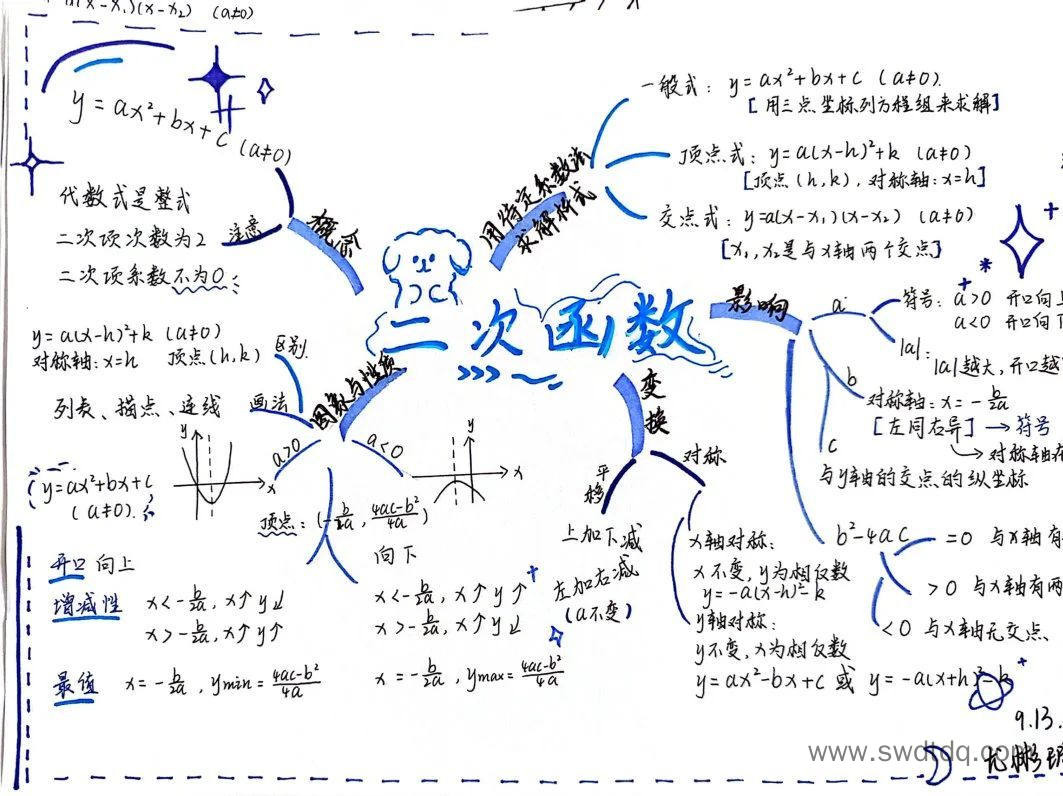 (x-x₁)(x-x₂) (a≠0)
y=ax²+bx+c (a≠0)
概念
注意
代数式是整式
二次项次数为2
二次项系数不为0
用待定系数法
求解析式
一般式: y=ax²+bx+c (a≠0).
[用三点坐标列方程组来求解]
顶点式: y=a(x-h)²+k (a≠0)
[顶点(h,k), 对称轴:x=h]
交点式: y=a(x-x₁)(x-x₂) (a≠0)
[x₁,x₂是与x轴两个交点]
二次函数
影响
a
符号: a>0 开口向上
a<0 开口向下
|a|:
|a|越大,开口越
b
对称轴:x=-b/2a
[左同右异]→符号
对称轴在
c
与y轴的交点的纵坐标
b²-4ac
=0 与x轴有
>0 与x轴有两
<0 与x轴无交点
图象与性质
区别
y=a(x-h)²+k (a≠0)
对称轴:x=h 顶点(h,k)
画法
列表、描点、连线
a>0
a<0
y
x
y
x
y=ax²+bx+c
(a≠0).
顶点:(-b/2a, 4ac-b²/4a)
开口 向上
向下
增减性 x<-b/2a, x↑y↓
x>-b/2a, x↑y↑
x<-b/2a, x↑y↑
x>-b/2a, x↑y↓
最值 x=-b/2a, ymin=4ac-b²/4a
x=-b/2a, ymax=4ac-b²/4a
变换
平移
上加下减
左加右减
(a不变)
对称
x轴对称:
x不变,y为相反数
y=-a(x-h)²-k
y轴对称:
y不变,x为相反数
y=ax²-bx+c 或 y=-a(x+h)²-k
9.13.
www.swdtdq.com